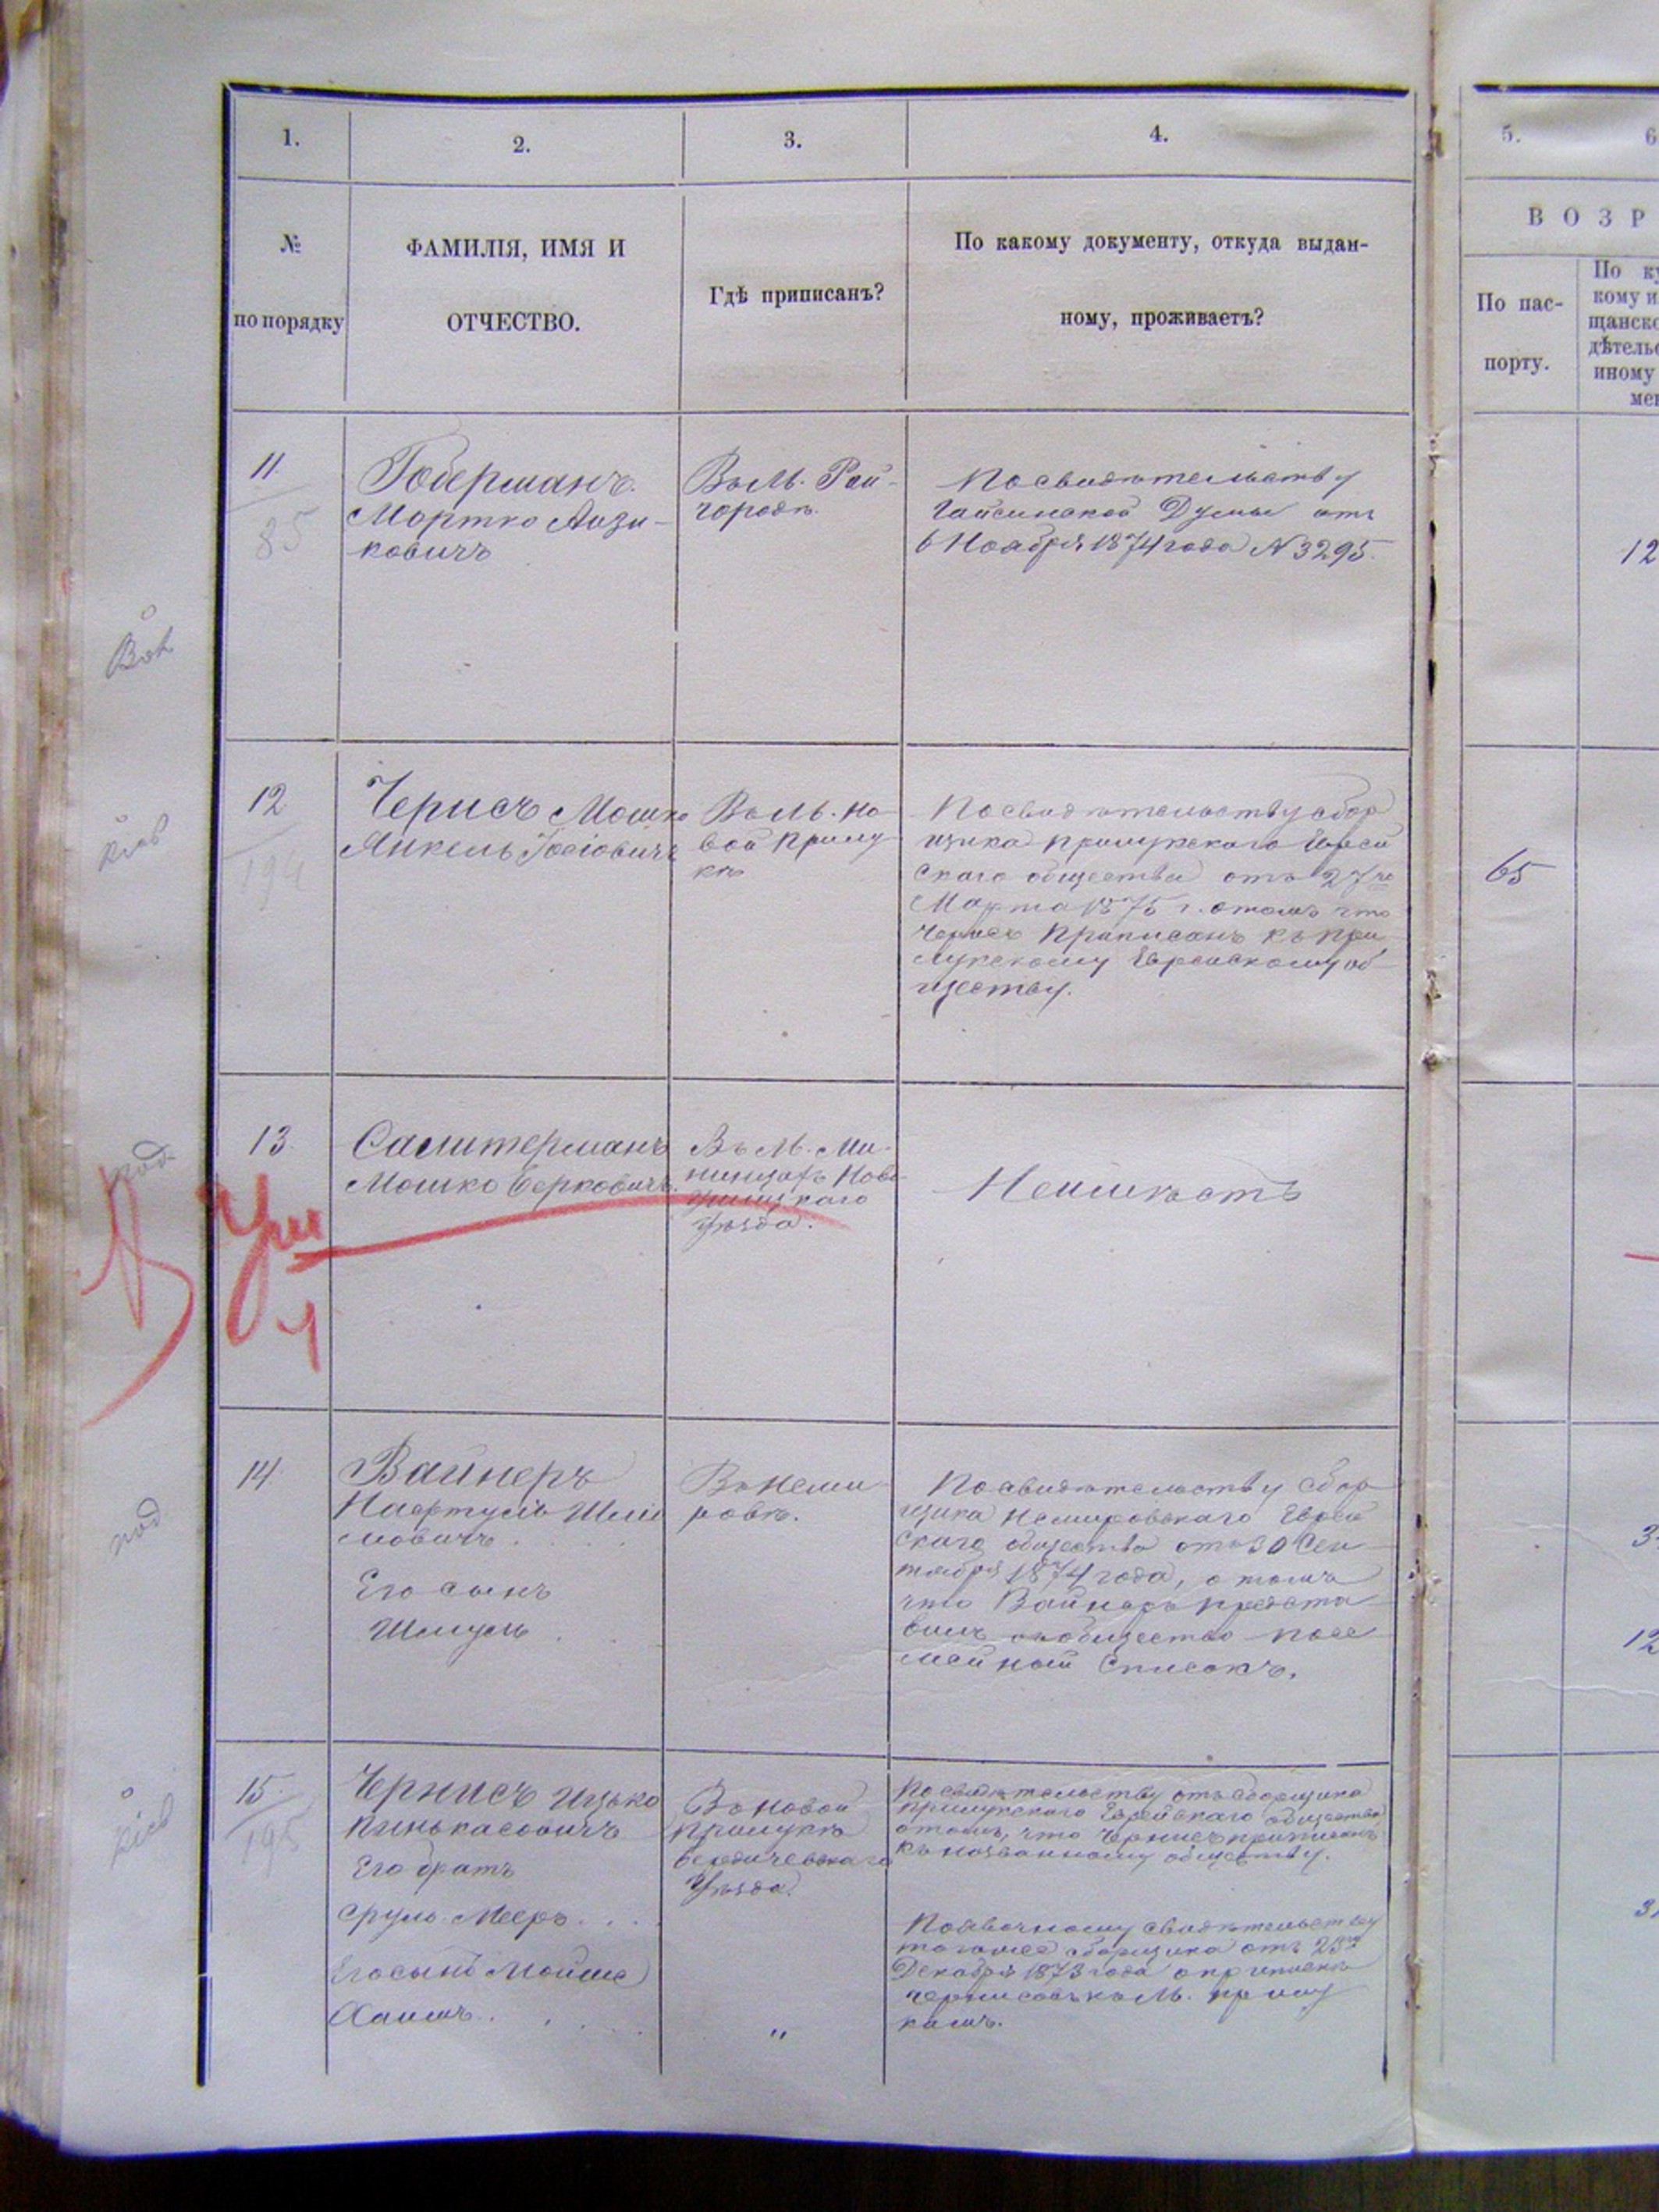 1.
2.
3.
4.
5.
6
№
по порядку
ФАМИЛІЯ, ИМЯ И
ОТЧЕСТВО.
Гдѣ приписанъ?
По какому документу, откуда выдан-
ному, проживаетъ?
ВОЗР
По пас-
порту.
По ку
кому и
щанско
дѣтельс
иному
мен
11.
85
Гоберманъ
Мортко Аизи-
ковичъ
Въ М. Рай-
городѣ.
По свидѣтельству
Гайсинской Думы отъ
6 Ноября 1874 года N 3295.
12
12
194
Чернисъ Мошко
Янкель Іосіовичъ
Въ М. Но-
вой Прилу-
кѣ
По свидѣтельству сбор
щика Прилукскаго Еврей
скаго общества отъ 27го
Марта 1875 г. о томъ что
Чернисъ приписанъ къ При
лукскому Еврейскому об-
ществу.
65
13.
Салитерманъ
Мошко Берковичъ.
Въ М. Ми-
ницахъ Ново-
ушицкаго
Уѣзда.
Неимѣетъ
под
14.
Вайнеръ
Нафтуль Шлио
мовичъ . . . .
Его сынъ
Шмуль . .
Въ Неми-
ровѣ.
По свидѣтельству сбор
щика Немировскаго Еврей
скаго общества отъ 30 Сен
тября 1874 года, о томъ
что Вайнеръ предста
вилъ въ общество посе
мейный списокъ.
12
под
15.
195
Чернисъ Ицько
Пинькасовичъ
Его братъ
Сруль Мееръ . . . .
Его сынъ Мойше
Хаимъ . . . .
Въ Новой
Прилукѣ
Бердичевскаго
Уѣзда.
"
По свидѣтельству отъ сборщика
Прилукскаго Еврейскаго общества
о томъ, что Чернисъ приписанъ
къ названному обществу.
По явочному свидѣтельству
того же сборщика отъ 25го
Декабря 1873 года о припискѣ
Чернисовъ къ М. Прилу
камъ.